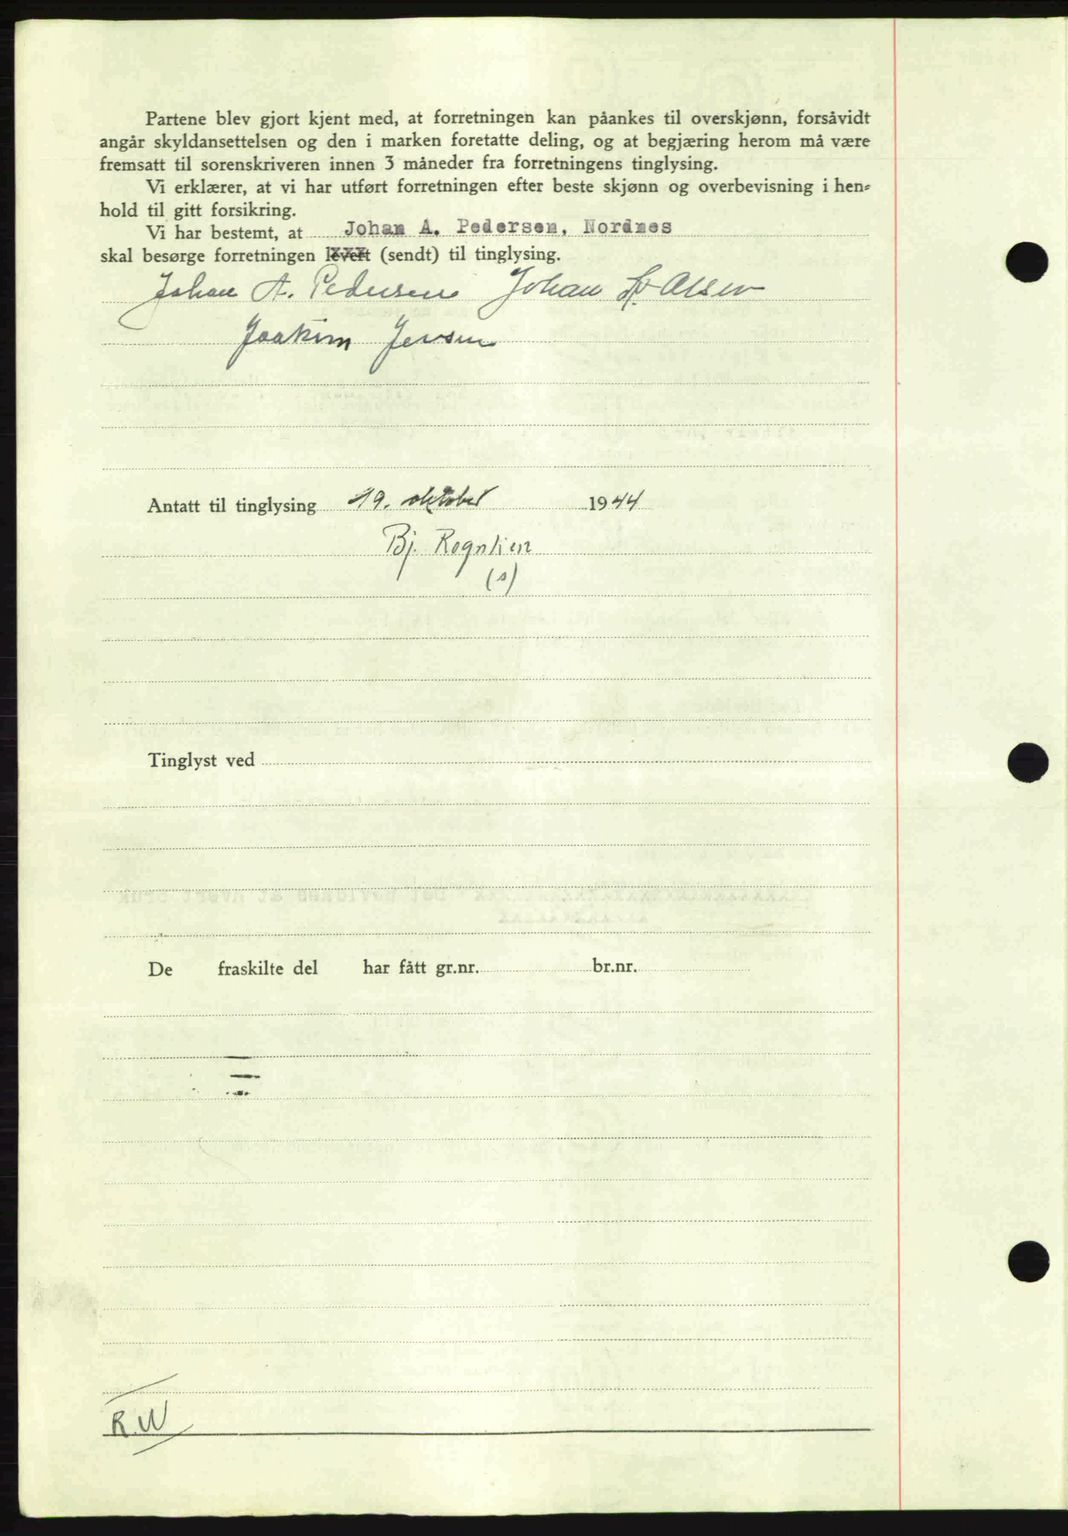 Partene blev gjort kjent med, at forretningen kan påankes til overskjønn, forsåvidt
angår skyldansettelsen og den i marken foretatte deling, og at begjæring herom må være
fremsatt til sorenskriveren innen 3 måneder fra forretningens tinglysing.
Vi erklærer, at vi har utført forretningen efter beste skjønn og overbevisning i hen-
hold til gitt forsikring.
Vi har bestemt, at Johan A. Pedersen, Nordnes
skal besørge forretningen levert (sendt) til tinglysing.
Johan A. Pedersen Johan Olsen
Joakim Jensen
Antatt til tinglysing 19. oktober 1944
Bj. Rognlien
(s)
Tinglyst ved
De fraskilte del har fått gr.nr. br.nr.
R.W